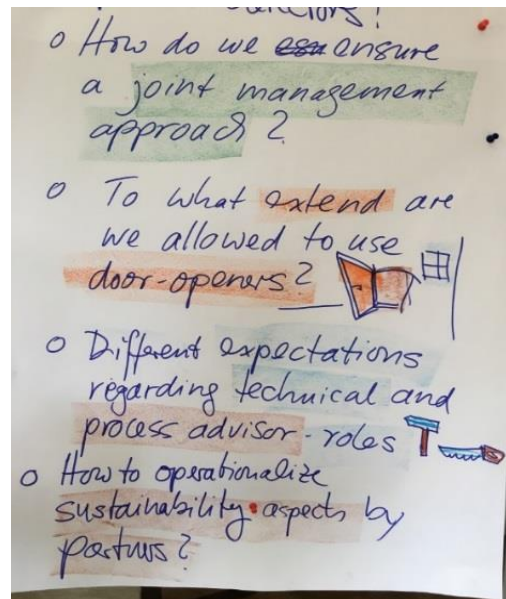 o How do we ensure
a joint management
approach?
o To what extend are
we allowed to use
door-openers?
o Different expectations
regarding technical and
process advisor-roles
o How to operationalize
sustainability aspects by
partners?